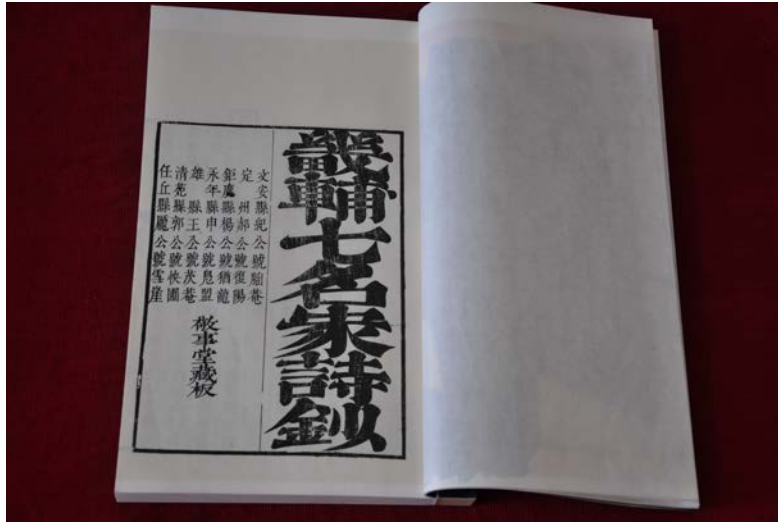 畿輔七名家詩鈔
文安縣紀公號菴
定州郝公號復陽
鉅鹿縣楊公號猶龍
永年縣申公號鳧盟
雄縣王公號茨菴
清苑縣郭公號快圃
任丘縣龐公號雪崖
敬事堂藏板